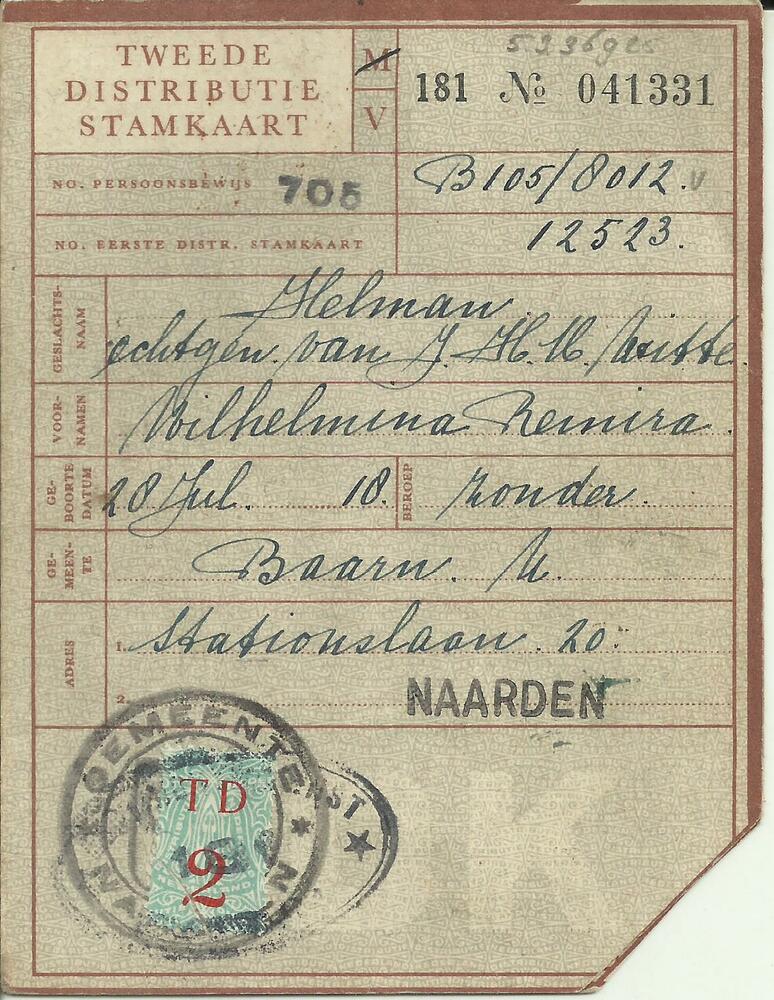 TWEEDE
DISTRIBUTIE
STAMKAART
M
V
181 No 041331
NO. PERSOONSBEWIJS 705 B105/8012. v
NO. EERSTE DISTR. STAMKAART 12523.
GESLACHTS-
NAAM
Helman
echtgen. van J. H. W. Witte.
VOOR-
NAMEN
Wilhelmina Remira.
GE-
BOORTE
DATUM
28 Jul. 18.
BEROEP
zonder.
GE-
MEEN-
TE
Baarn. U.
ADRES
1. Stationslaan. 20.
2. NAARDEN
GEMEENTE
NAARDEN
TD
2
ST